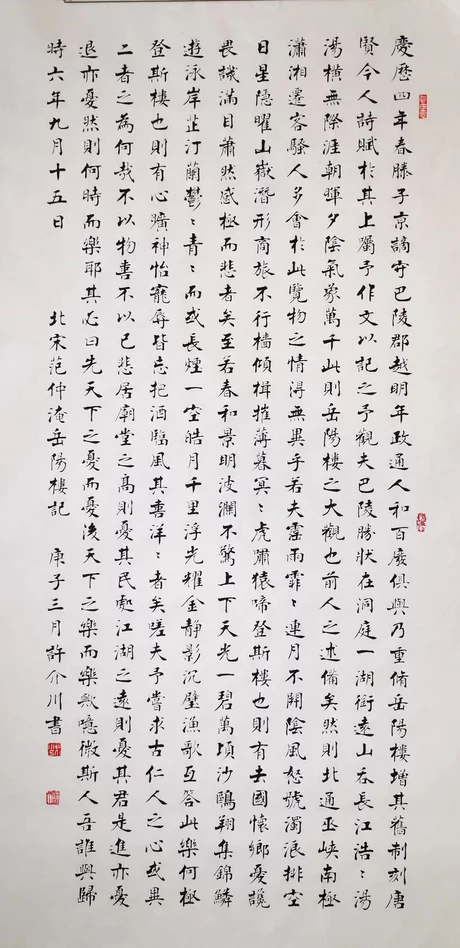 慶歷四年春滕子京謫守巴陵郡越明年政通人和百廢俱興乃重脩岳陽樓增其舊制刻唐
賢今人詩賦於其上屬予作文以記之予觀夫巴陵勝狀在洞庭一湖銜遠山吞長江浩〻湯
湯橫無際涯朝暉夕陰氣象萬千此則岳陽樓之大觀也前人之述備矣然則北通巫峽南極
瀟湘遷客騷人多會於此覽物之情得無異乎若夫霪雨霏〻連月不開陰風怒號濁浪排空
日星隱曜山嶽潛形商旅不行檣傾楫摧薄暮冥〻虎嘯猿啼登斯樓也則有去國懷鄉憂讒
畏譏滿目蕭然感極而悲者矣至若春和景明波瀾不驚上下天光一碧萬頃沙鷗翔集錦鱗
遊泳岸芷汀蘭鬱〻青〻而或長煙一空皓月千里浮光耀金靜影沉璧漁歌互答此樂何極
登斯樓也則有心曠神怡寵辱皆忘把酒臨風其喜洋〻者矣嗟夫予嘗求古仁人之心或異
二者之為何哉不以物喜不以己悲居廟堂之高則憂其民處江湖之遠則憂其君是進亦憂
退亦憂然則何時而樂耶其必曰先天下之憂而憂後天下之樂而樂歟噫微斯人吾誰與歸
時六年九月十五日 北宋范仲淹岳陽樓記 庚子三月許介川書